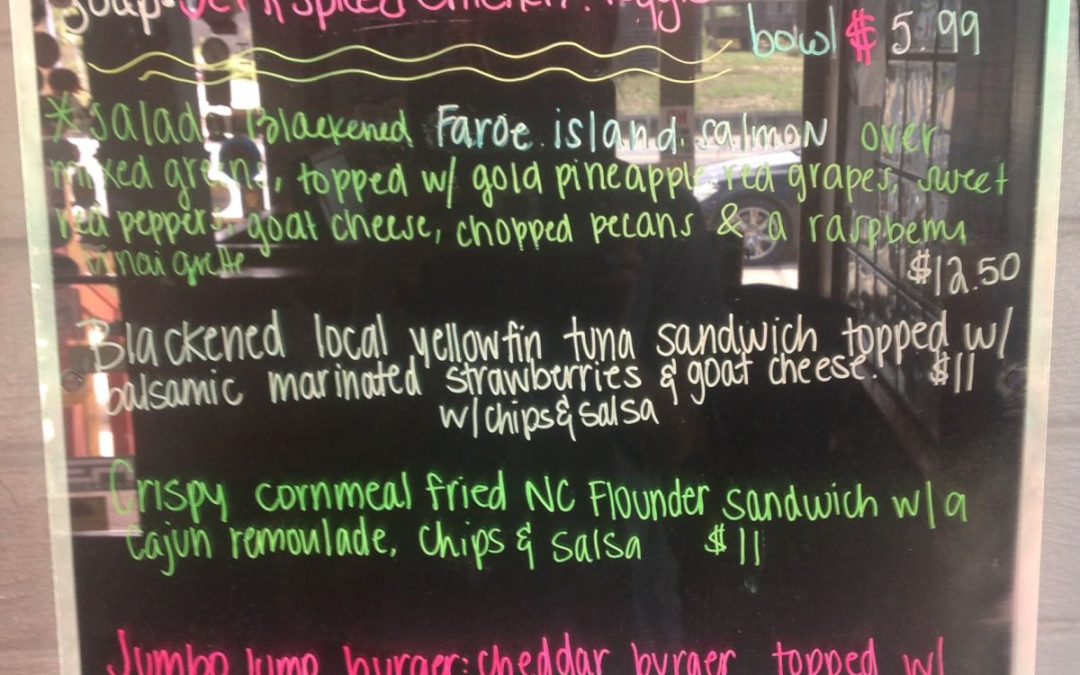 Soup- Jerk Spiced Chicken & Veggie
bowl $5.99
*Salad- Blackened Faroe island salmon over
mixed greens, topped w/ gold pineapple, red grapes, sweet
red peppers, goat cheese, chopped pecans & a raspberry
vinaigrette
$12.50
Blackened local yellowfin tuna sandwich topped w/
balsamic marinated strawberries & goat cheese. $11
w/ chips & salsa
Crispy cornmeal fried NC Flounder sandwich w/ a
Cajun remoulade, chips & salsa $11
Jumbo lump burger: cheddar burger topped w/